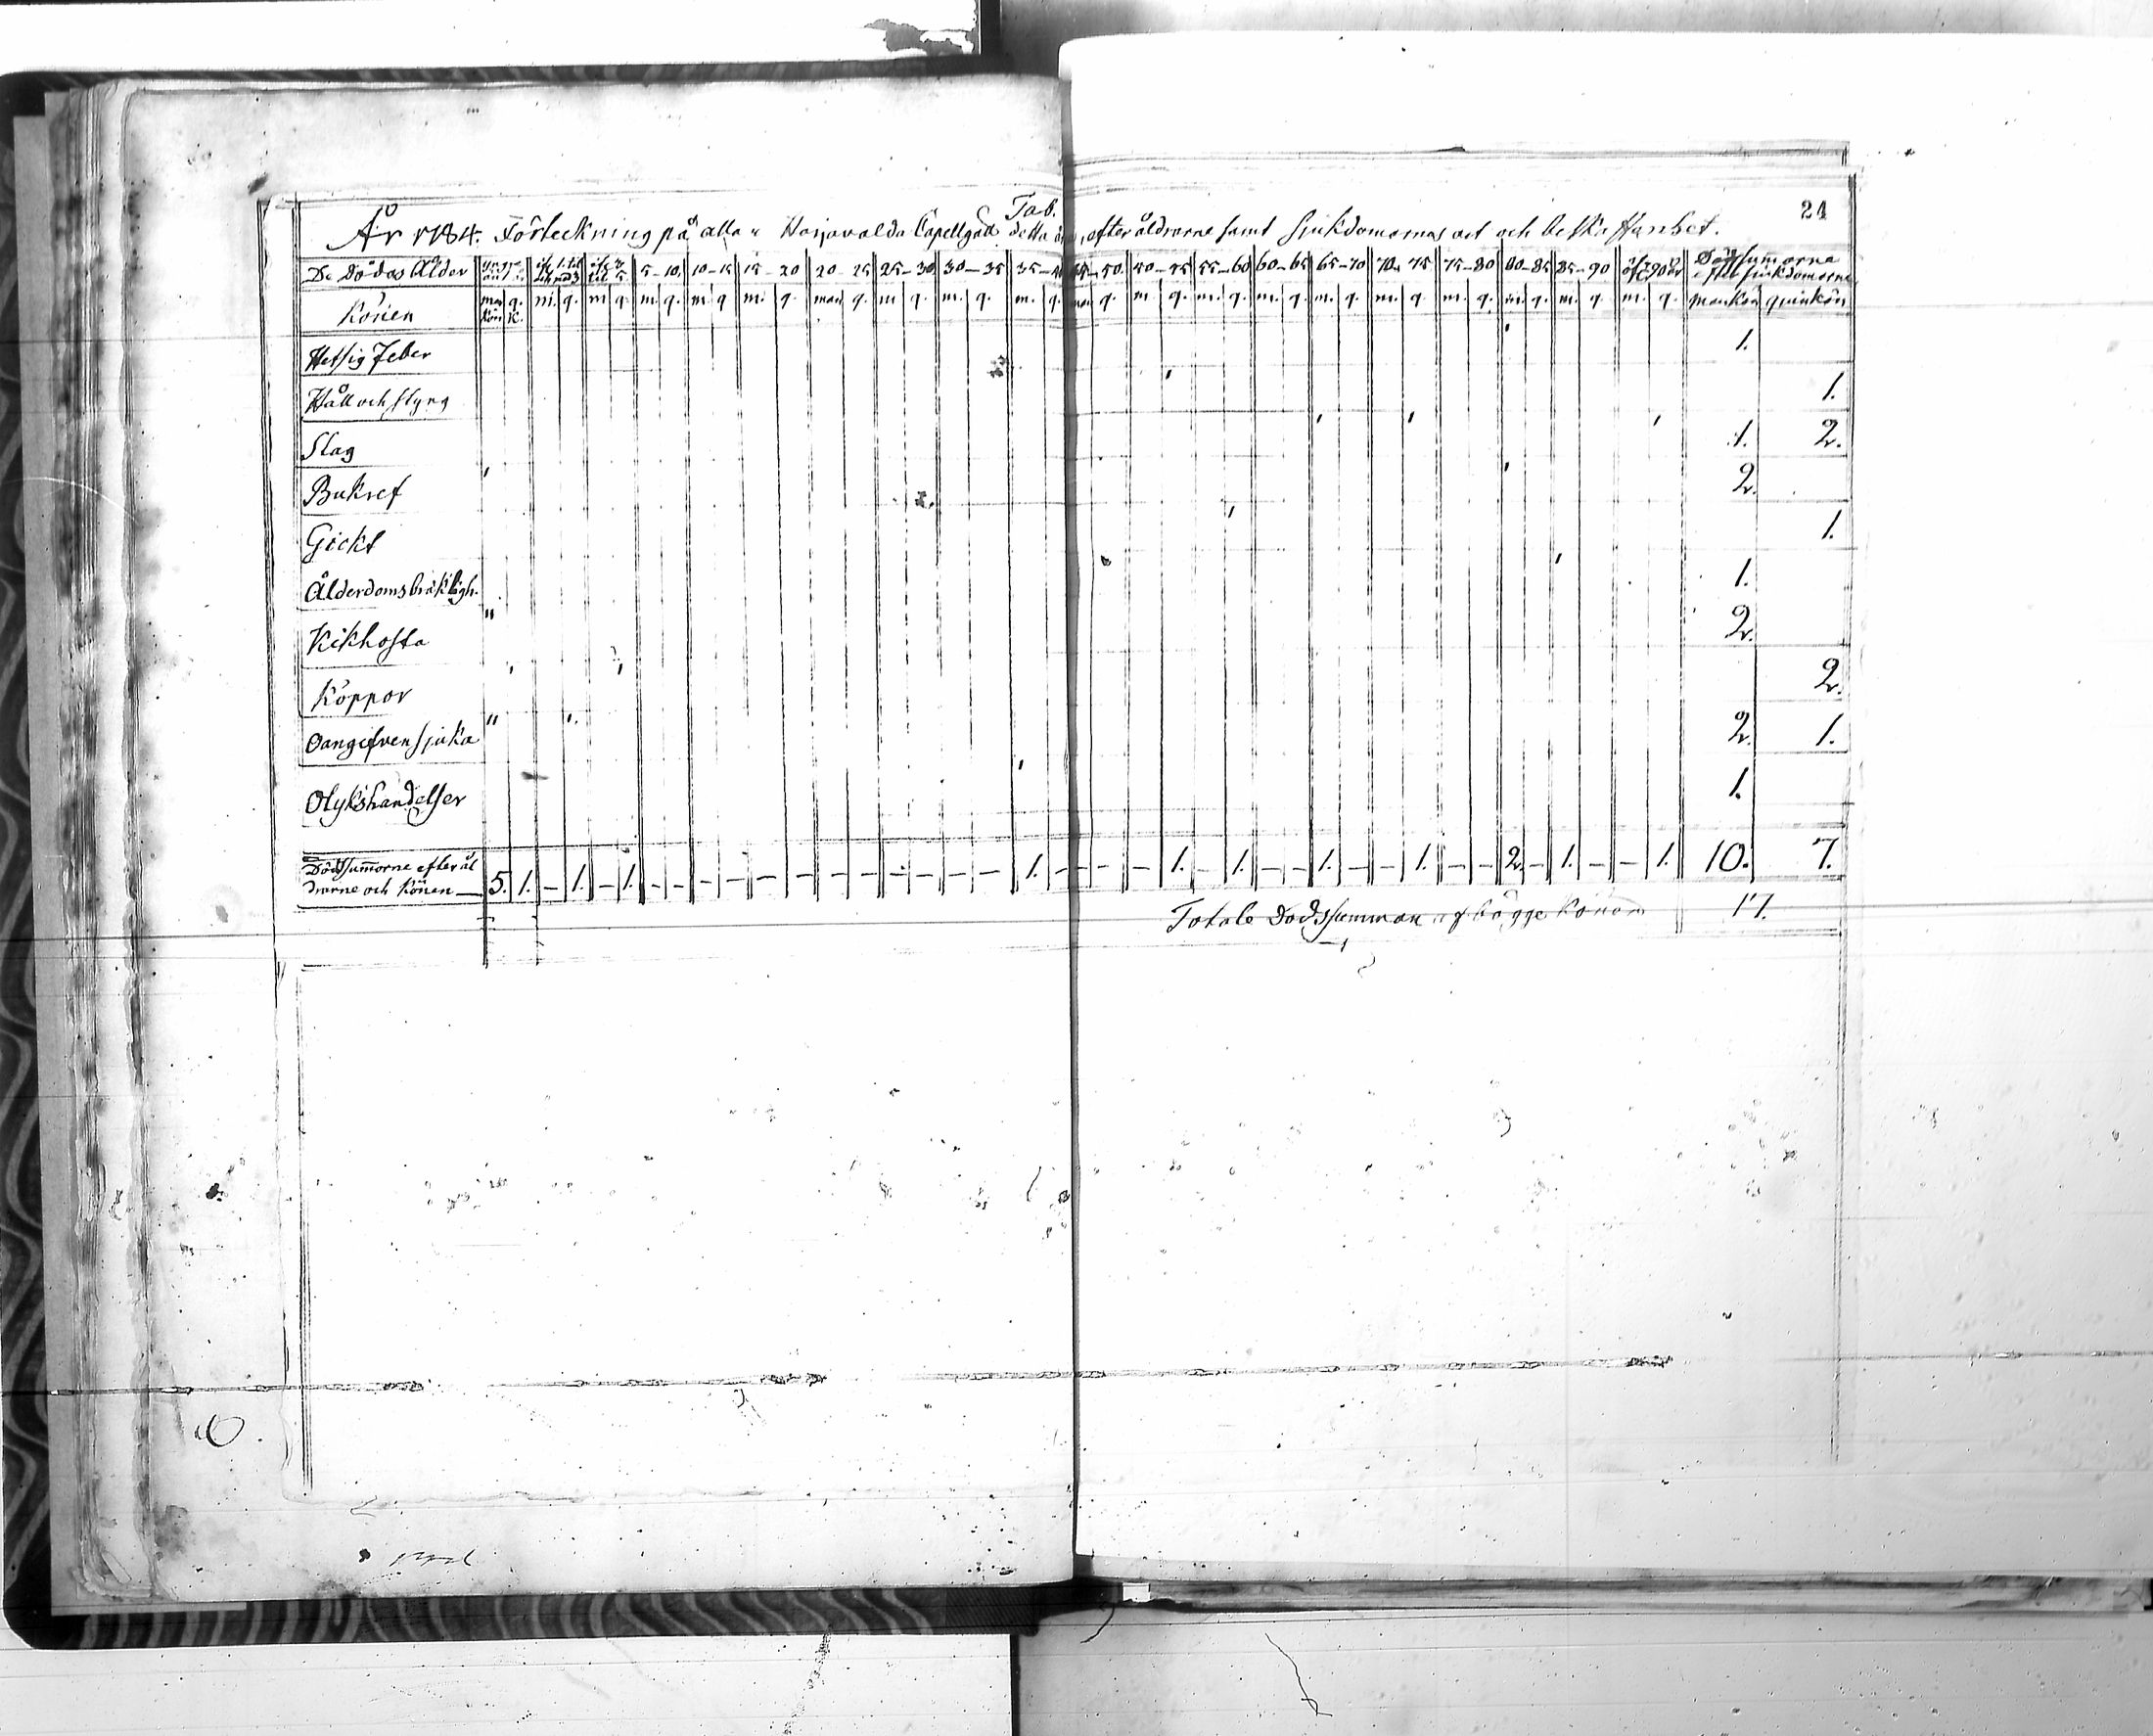 24
Tab.
År 1784. Förteckning på alla Döda i Harjavalda Capellgäld detta år, efter åldrarne samt sjukdomarnas art och beskaffenhet.
De Dödas Ålder 5-10. 10-15 15-20 20-25 25-30 30-35 35- 50. 50-55 55-60 60-65 65-70 70-75 75-80 80-85 85-90 öfver 90 år Dödssummorne efter sjukdomarne
Könen mankön q.k. m. q. m q. m. q. m q m. q. man q. m q. m. q. m. q. man q. m q. m. q. m. q. m. q. m. q m. q. m. q. m. q. m. q. mankön quinkön
Hetsig Feber ' 1.
Håll och styng ' 1.
Slag ' ' ' 1. 2.
Bukref ' ' 2.
Gickt ' 1.
Ålderdoms bräkligh. ' 1.
Kikhosta " 2.
Koppor ' ' 2.
Oangifven sjuka " '. 2. 1.
Olyckshändelser ' 1.
Dödssummorne efter ål
drarne och könen — 5. 1. — 1. — 1. — — — — — — — — — — — — 1. — — — — 1. — 1. — — 1. — — 1. — — 2. — 1. — — 1. 10. 7.
Totale Dödssumman af bägge könen 17.